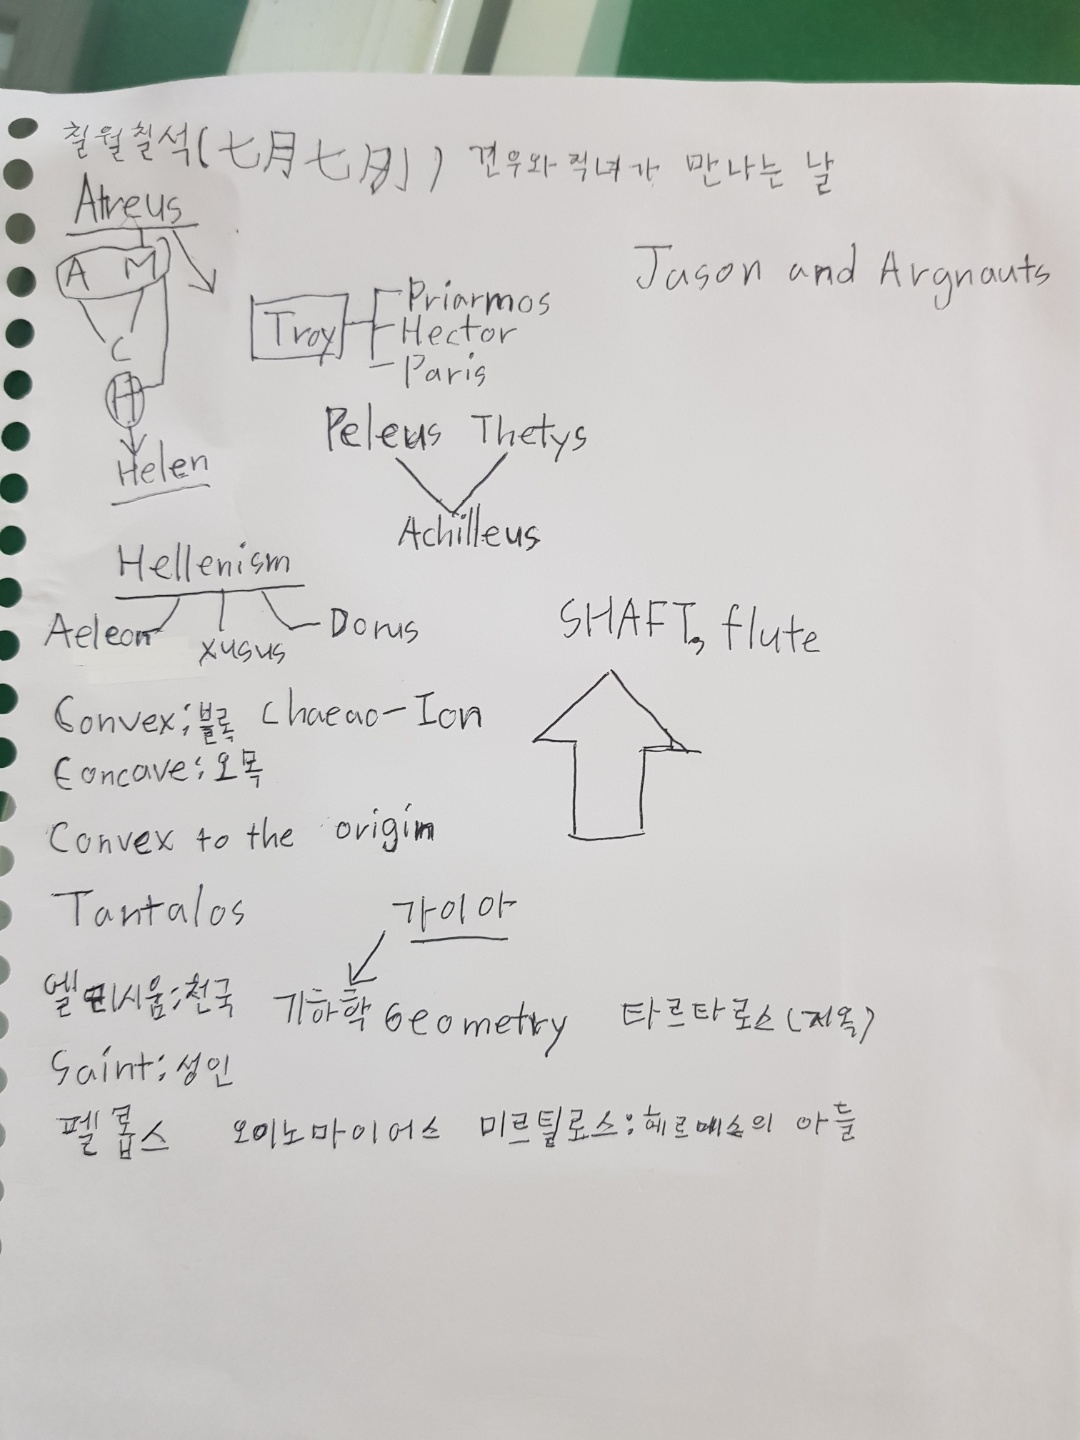 칠월칠석(七月七夕) 견우와 직녀가 만나는 날
Atreus
Jason and Argnauts
A M
C
H
Helen
Troy
Priarmos
Hector
Paris
Peleus Thetys
Achilleus
Hellenism
Aeleon Xusus Dorus
SHAFT, flute
Convex;볼록 Chaeao-Ion
Concave:오목
Convex to the origin
Tantalos 가이아
엘리시움:천국 기하학 Geometry 타르타로스(지옥)
Saint:성인
펠롭스 오이노마이어스 미르틸로스:헤르메스의 아들